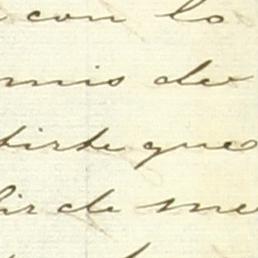 con lo
mis de
tirte que
lir de me